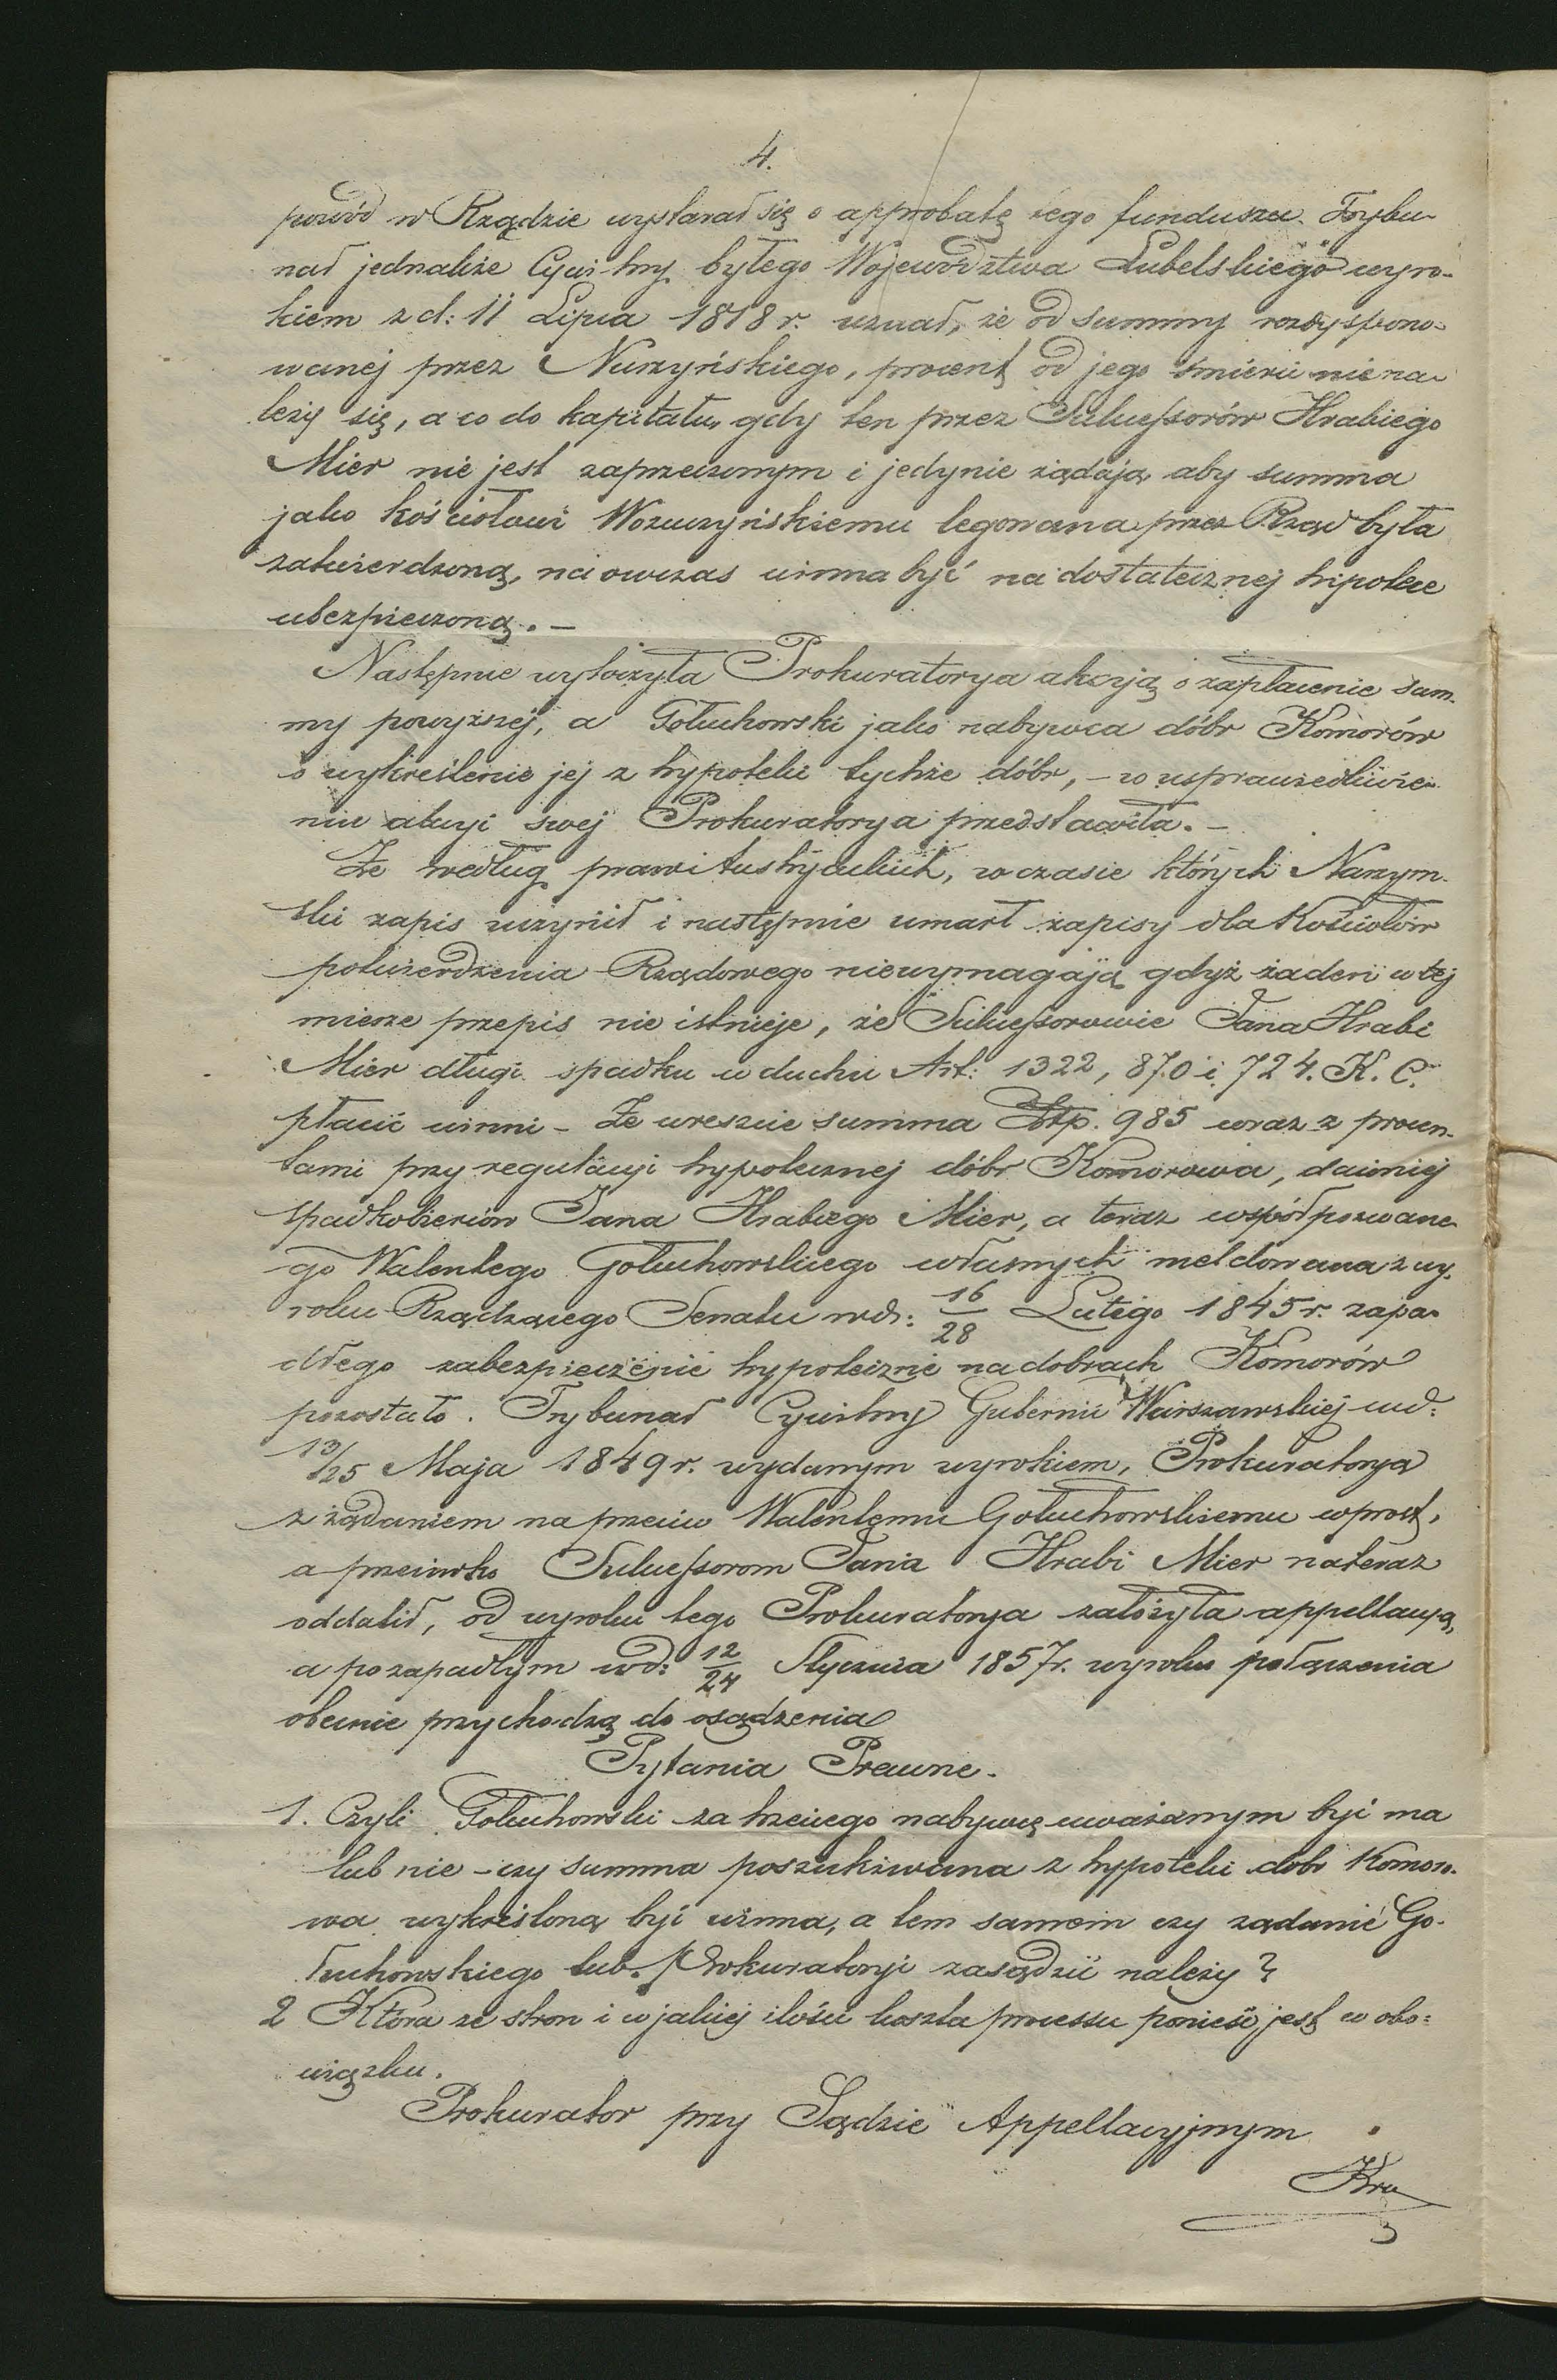 4.
powód w Rządzie wystarał się o approbatę tego funduszu. Trybu-
nał jednakże Cywilny byłego Województwa Lubelskiego wyro-
kiem z d: 11 Lipca 1818 r. uznał, że od summy rozdyspono-
wanej przez Nurzyńskiego, procent od jego śmierci nie na-
leży się, a co do kapitału, gdy ten przez Sukcessorów Hrabiego
Mier nie jest zaprzeczonym i jedynie żądają aby summa
jako kościołowi Wożuczyńskiemu legowana przez Rząd była
zatwierdzoną, naowczas winna być na dostatecznej hipotece
ubezpieczoną. –
Następnie wytoczyła Prokuratorya akcyją o zapłacenie sum-
my powyższéj, a Gołuchowski jako nabywca dóbr Komorów
o wykreślenie jej z hypoteki tychże dóbr, – w usprawiedliwie-
niu akcyi swej Prokuratorya przedstawiła. –
Że według praw Austryackich, w czasie których Narzym-
ski zapis uczynił i następnie umarł zapisy dla Kościołów
potwierdzenia Rządowego niewymagają gdyż żaden w tej
mierze przepis nie istnieje, że Sukcessorowie Jana Hrabi
Mier długi spadku w duchu Art: 1322, 870 i 724. K. C.
płacić winni – Że wreszcie summa Złtp. 985 wraz z procen-
tami przy regulacyi hypotecznej dóbr Komorowa, dawniej
spadkobierców Jana Hrabiego Mier, a teraz współpozwane-
go Walentego Gołuchowskiego własnych meldowana z wy-
roku Rządzącego Senatu w d: 16/28 Lutego 1845 r. zapa-
dłego zabezpieczenie hypoteczne na dobrach Komorów
pozostało. Trybunał Cywilny Gubernii Warszawskiéj w d:
13/25 Maja 1849 r. wydanym wyrokiem, Prokuratoryą
z żądaniem naprzeciw Walentemu Gołuchowskiemu wprost,
a przeciwko Sukcessorom Jana Hrabi Mier nateraz
oddalił, od wyroku tego Prokuratorya założyła appellacyą,
a po zapadłym w d: 12/24 Stycznia 1857 r. wyroku połączenia
obecnie przychodzą do osądzenia
Pytania Prawne.
1. Czyli Gołuchowski za trzeciego nabywcę uważanym być ma
lub nie – czy summa poszukiwana z hypoteki dóbr Komoro-
wa wykreśloną być winna, a tem samem czy żądanie Go-
łuchowskiego lub Prokuratoryi zasądzić należy?
2 Która ze stron i w jakiej ilości koszta processu ponieść jest w obo-
wiązku.
Prokurator przy Sądzie Appellacyjnym